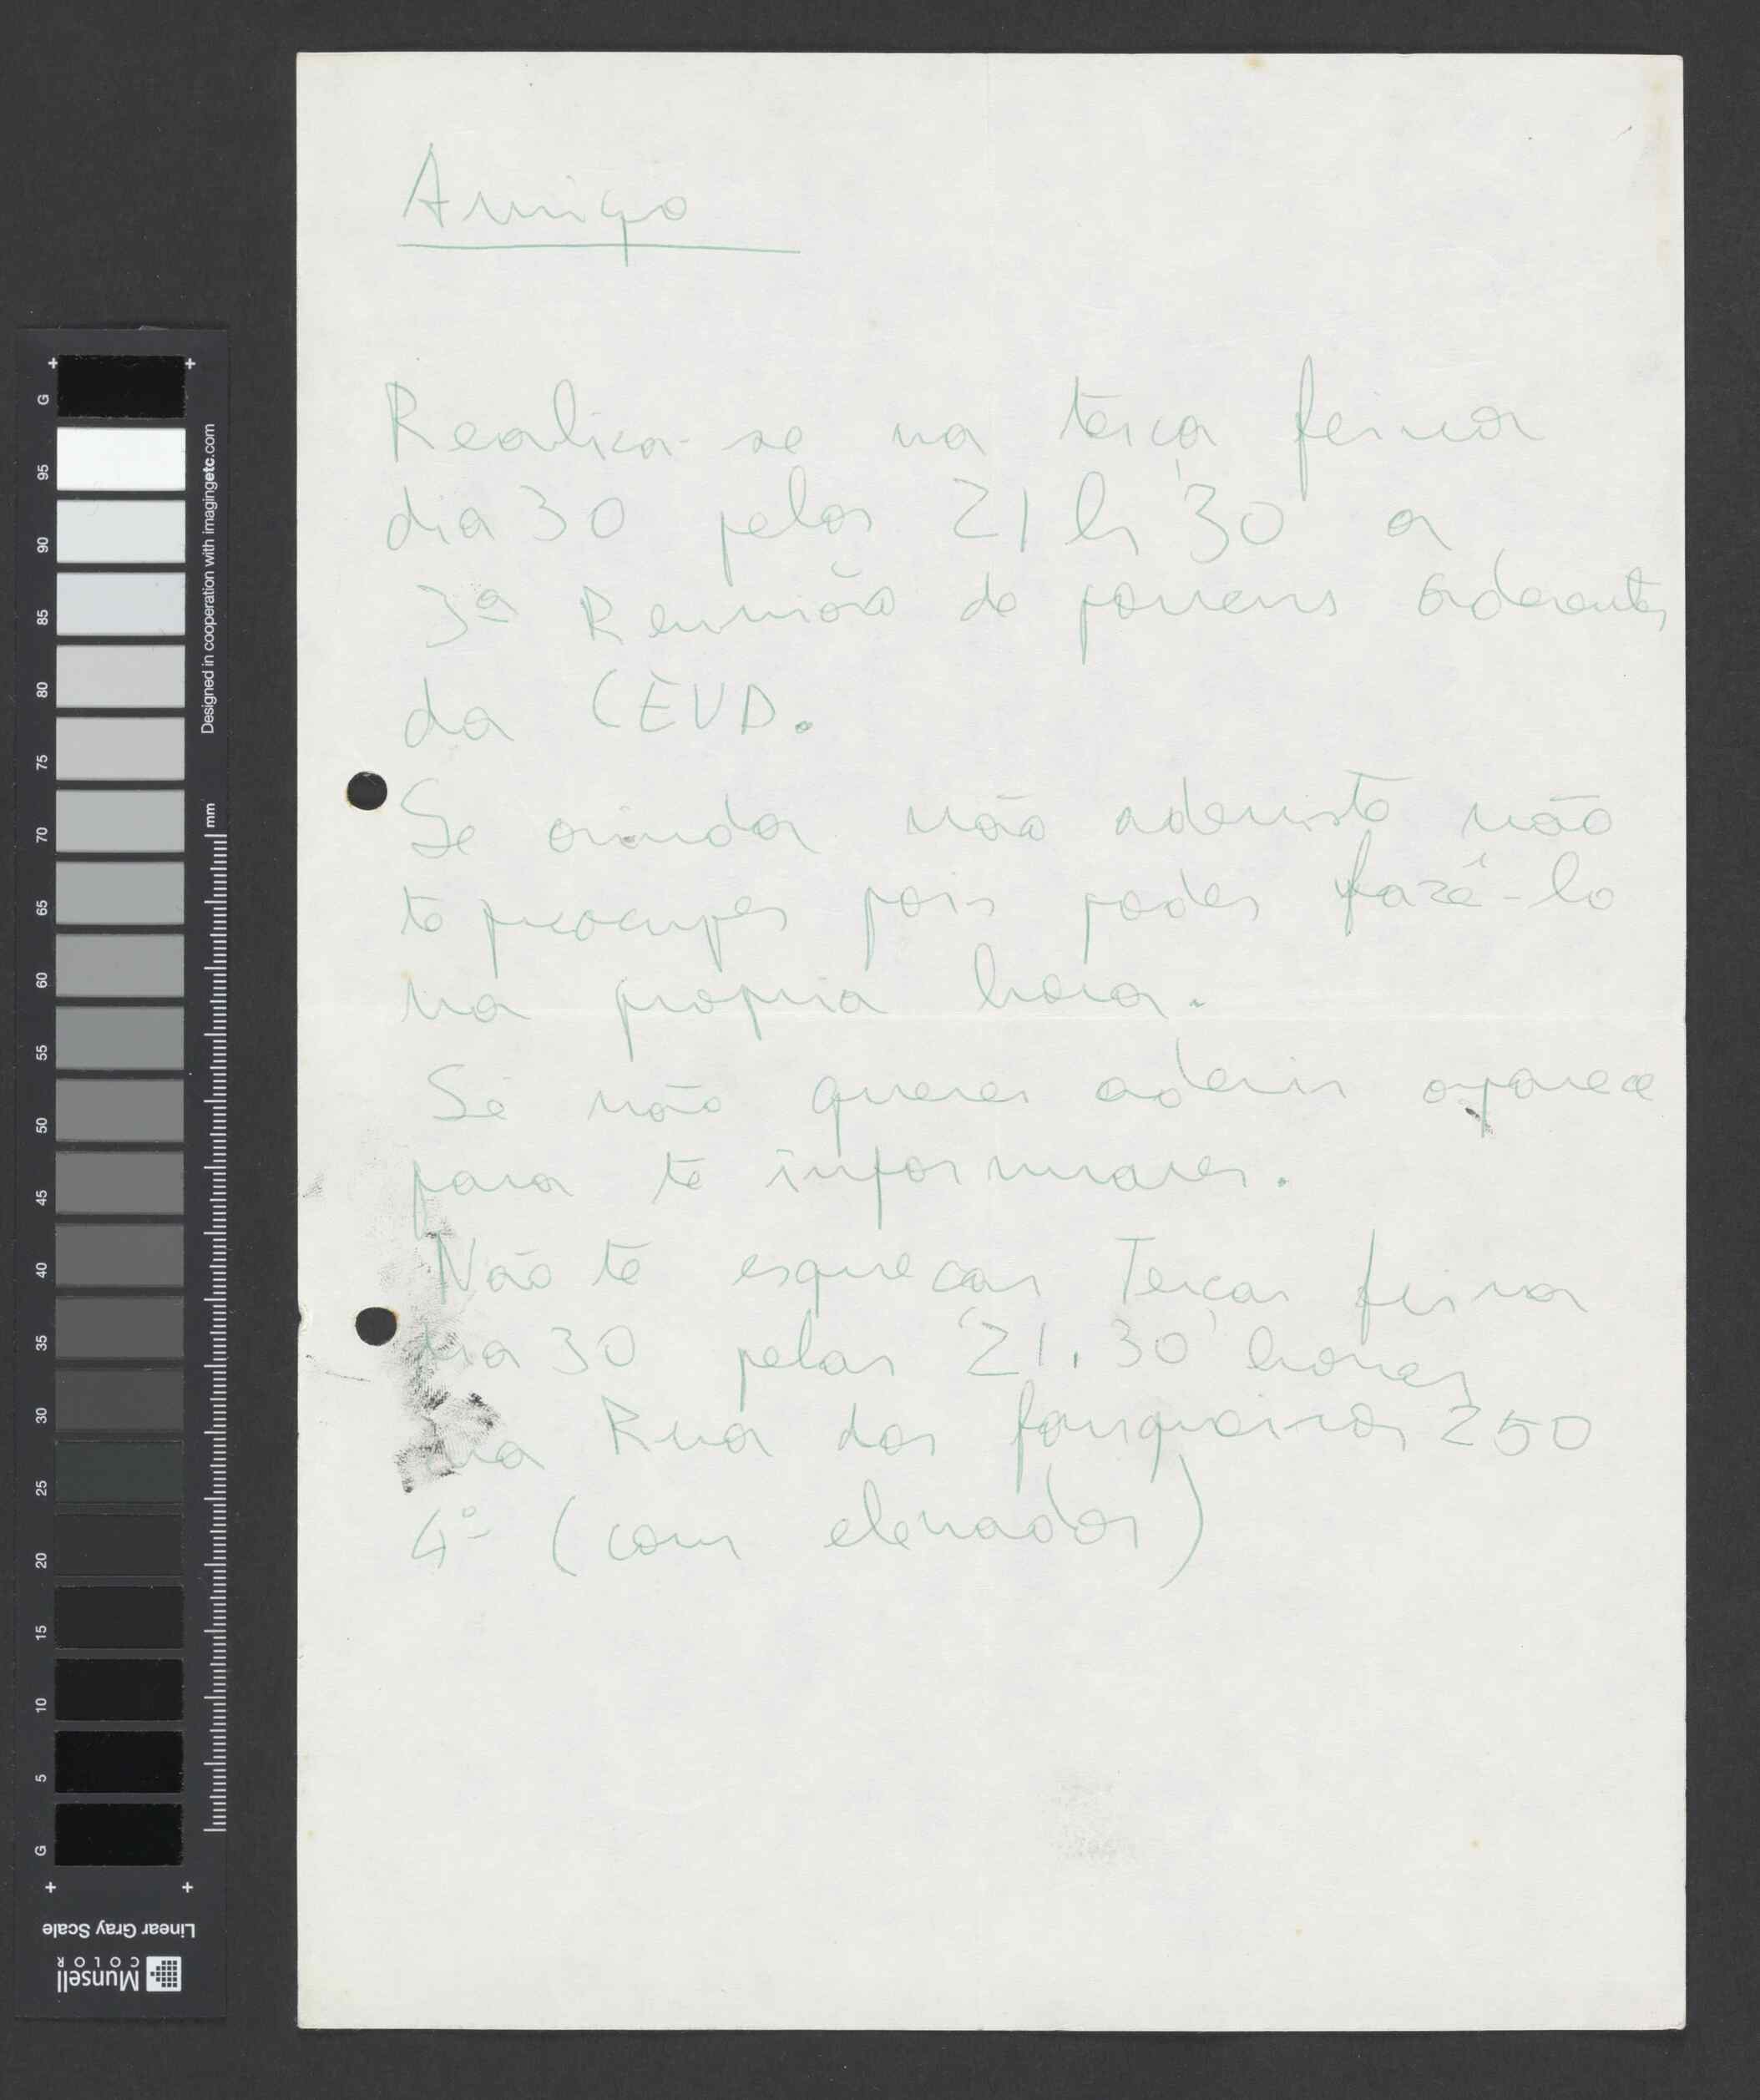 Amigo
Realiza-se na terça feira
dia 30 pelas 21 h 30 a
3ª Reunião de jovens aderentes
da CEUD.
Se ainda não aderiste não
te preocupes pois podes fazê-lo
na propria hora.
Se não queres aderir aparece
para te informares.
Não te esqueças Terça feira
dia 30 pelas 21.30 horas
na Rua dos fanqueiros 250
4º (com elevador)
G
95
90
85
80
75
70
65
60
55
50
45
40
35
30
25
20
15
10
5
G
Designed in cooperation with imagingetc.com
mm
Linear Gray Scale
Munsell
COLOR